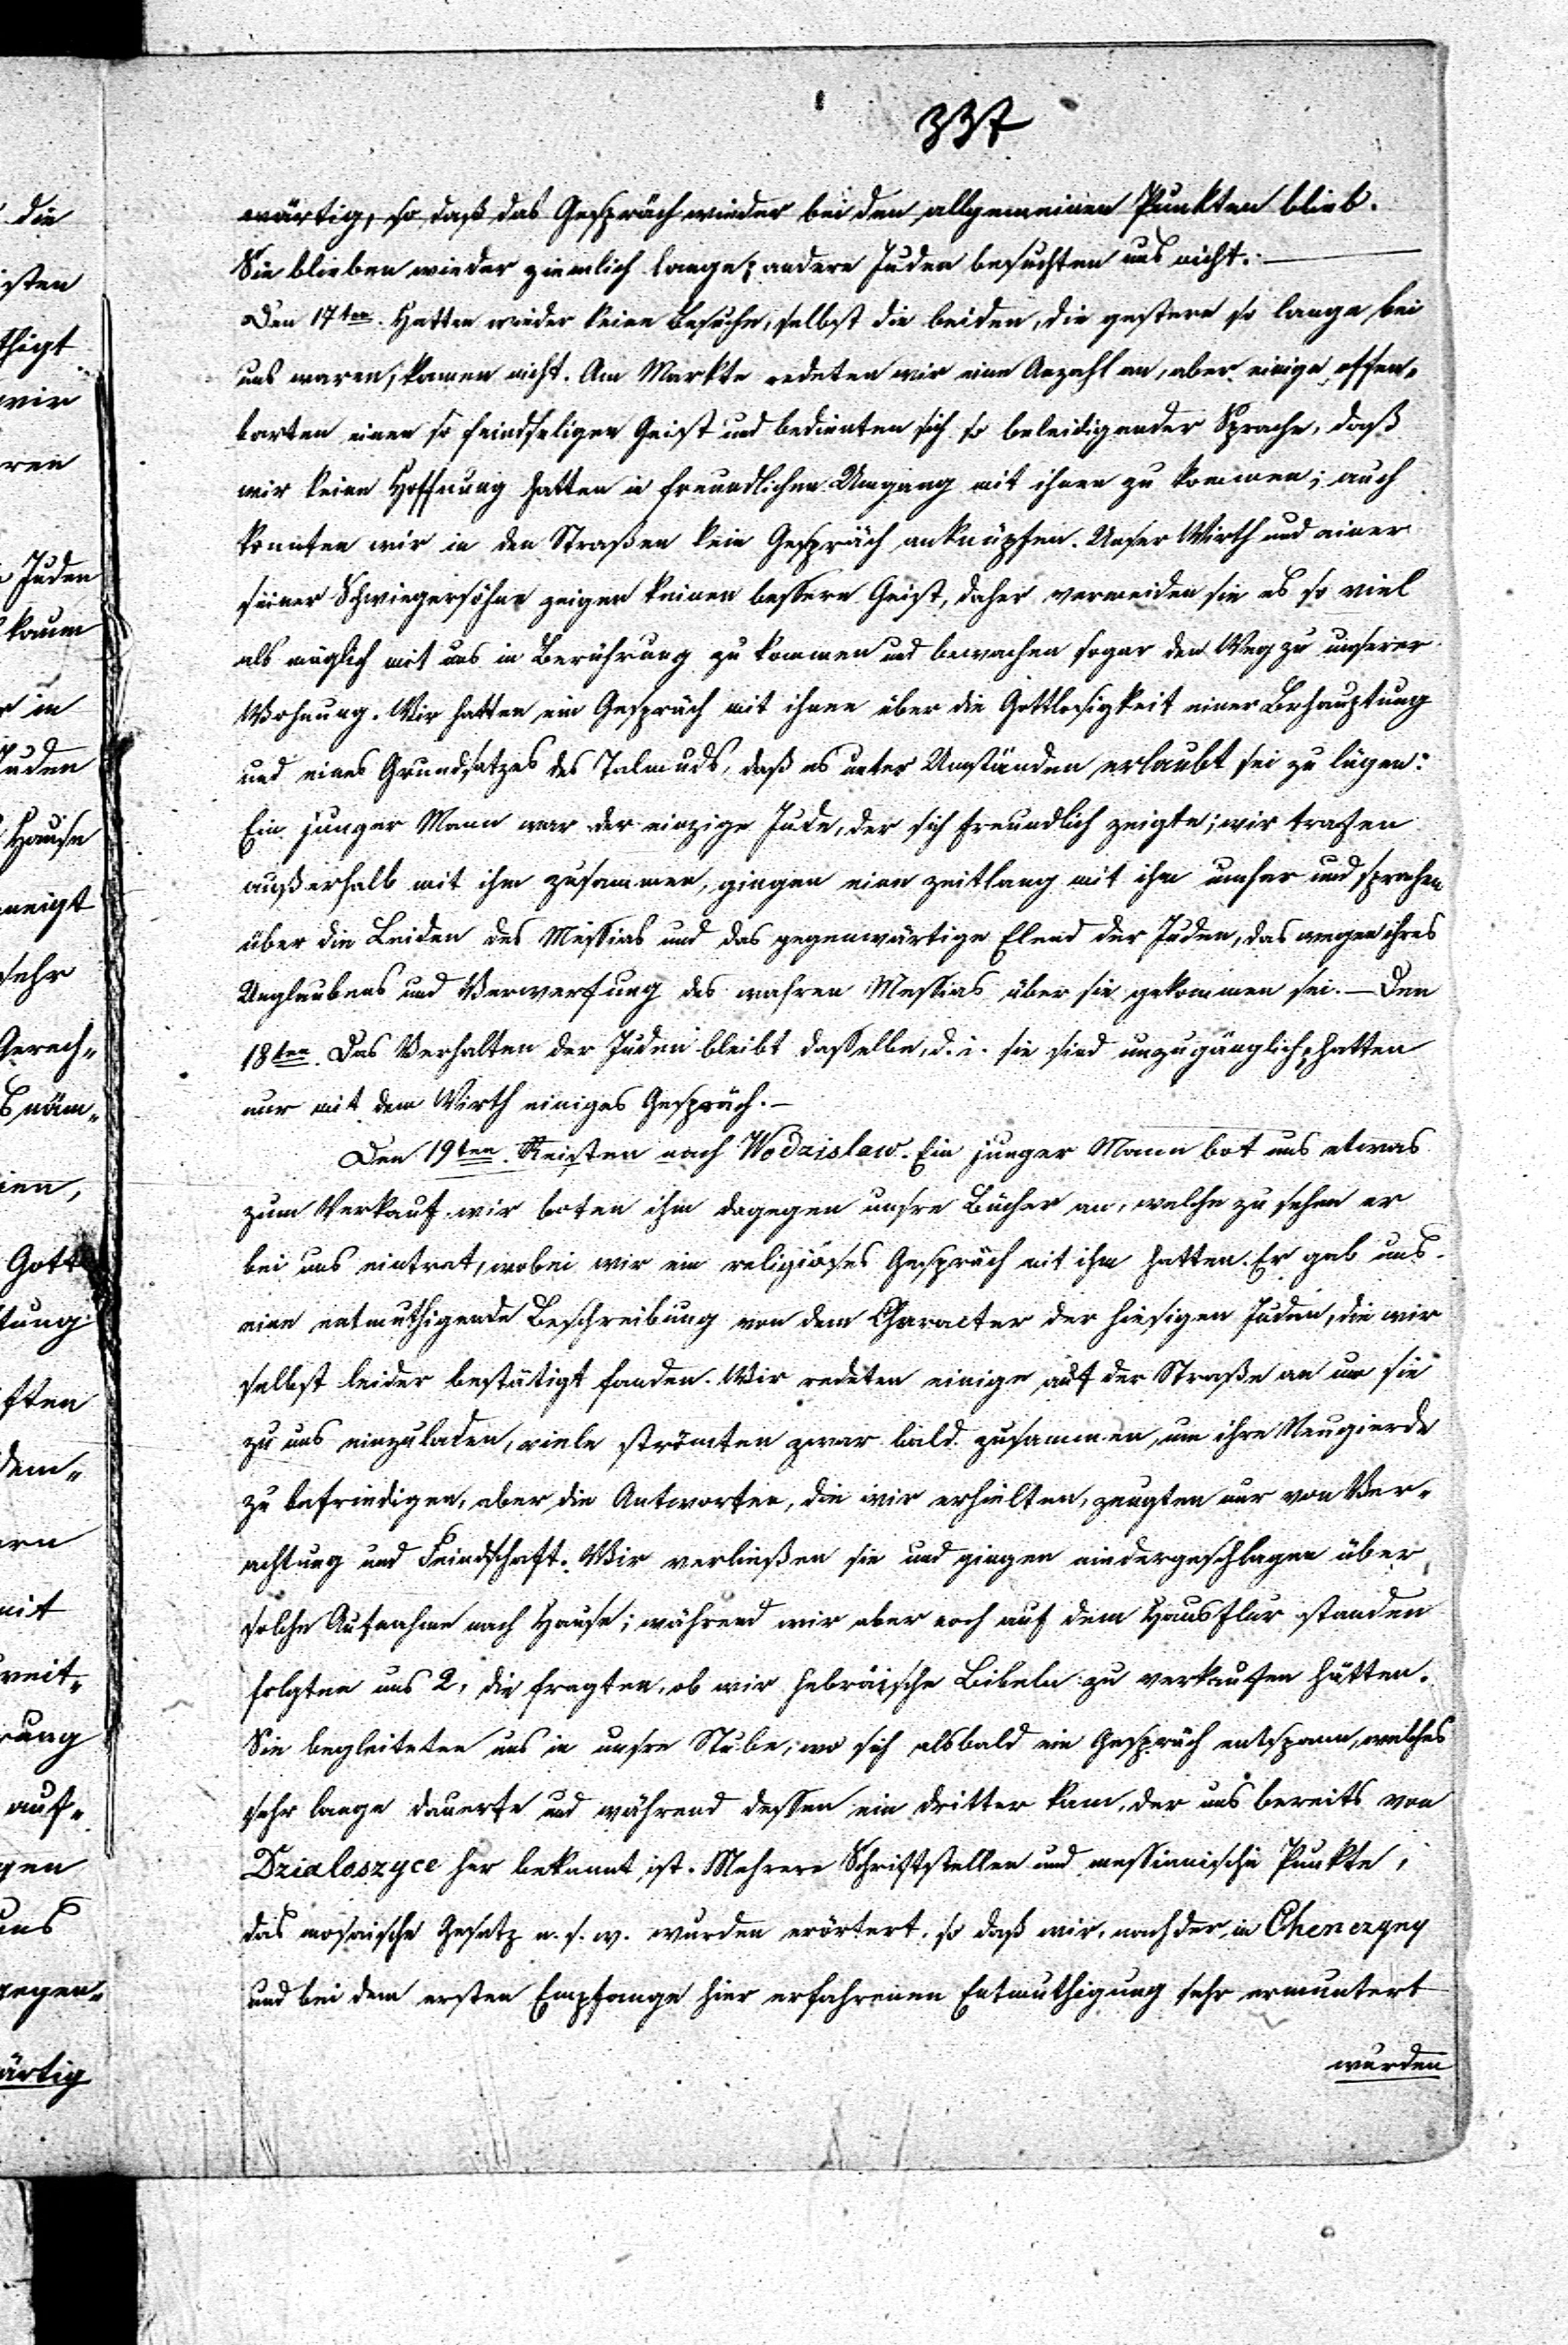 337
wärtig, so daß das Gespräch wieder bei den allgemeinen Punkten blieb.
Sie blieben wieder ziemlich lange; andere Juden besuchten uns nicht. —
Den 17ten. Hatten wieder keine Besuche, selbst die beiden, die gestern so lange bei
uns waren, kamen nicht. Am Markte redeten wir eine Anzahl an, aber einige offen„
barten einen so feindseligen Geist und bedienten sich so beleidigender Sprache, daß
wir keine Hoffnung hatten in freundlichen Umgang mit ihnen zu kommen; auch
konnten wir in den Straßen kein Gespräch anknüpfen. Unser Wirth und einer
seiner Schwiegersöhne zeigen keinen bessern Geist, daher vermeiden sie es so viel
als möglich mit uns in Berührung zu kommen und bewachen sogar den Weg zu unserer
Wohnung. Wir hatten ein Gespräch mit ihnen über die Gottlosigkeit einer Behauptung
und eines Grundsatzes des Talmuds, daß es unter Umständen erlaubt sei zu lügen:
Ein junger Mann war der einzige Jude, der sich freundlich zeigte; wir trafen
außerhalb mit ihm zusammen, gingen eine zeitlang mit ihm umher und sprachen
über die Leiden des Messias und das gegenwärtige Elend der Juden, das wegen ihres
Unglaubens und Verwerfung des wahren Messias über sie gekommen sei. — Den
18ten. Das Verhalten der Juden bleibt dasselbe, d. i. sie sind unzugänglich, hatten
nur mit dem Wirth einiges Gespräch. —
Den 19ten. Reisten nach Wodzislaw. Ein junger Mann bot uns etwas
zum Verkauf, wir boten ihm dagegen unsre Bücher an, welche zu sehen er
bei uns eintrat, wobei wir ein religiöses Gespräch mit ihm hatten. Er gab uns
eine entmuthigende Beschreibung von dem Character der hiesigen Juden, die wir
selbst leider bestätigt fanden. Wir redeten einige auf der Straße an um sie
zu uns einzuladen, viele strömten zwar bald zusammen, um ihre Neugierde
zu befriedigen, aber die Antworten, die wir erhielten, zeugten nur von Ver„
achtung und Feindschaft. Wir verließen sie und gingen niedergeschlagen über
solche Aufnahme nach Hause; während wir aber noch auf dem Hausflur standen
folgten uns 2, die fragten, ob wir hebräische Bibeln zu verkaufen hätten.
Sie begleiteten uns in unsre Stube, wo sich alsbald ein Gespräch entspann, welches
sehr lange dauerte und während dessen ein dritter kam, der uns bereits von
Dzialoszyce her bekannt ist. Mehrere Schriftstellen und messianische Punkte,
das mosaische Gesetz u. s. w. wurden erörtert, so daß wir, nach der in Chenczyny
und bei dem ersten Empfange hier erfahrenen Entmuthigung sehr ermuntert
wurden